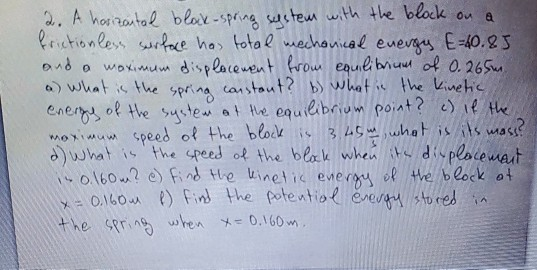 2. A horizontal block-spring system with the block on a
frictionless surface has total mechanical energy E=40.8 J
and a maximum displacement from equilibrium of 0.265m
a) What is the spring constant? b) What is the kinetic
energy of the system at the equilibrium point? c) if the
maximum speed of the block is 3.45 m/s, what is its mass?
d) What is the speed of the block when its displacement
is 0.160m? e) Find the kinetic energy of the block at
x = 0.160m f) Find the potential energy stored in
the spring when x = 0.160m.